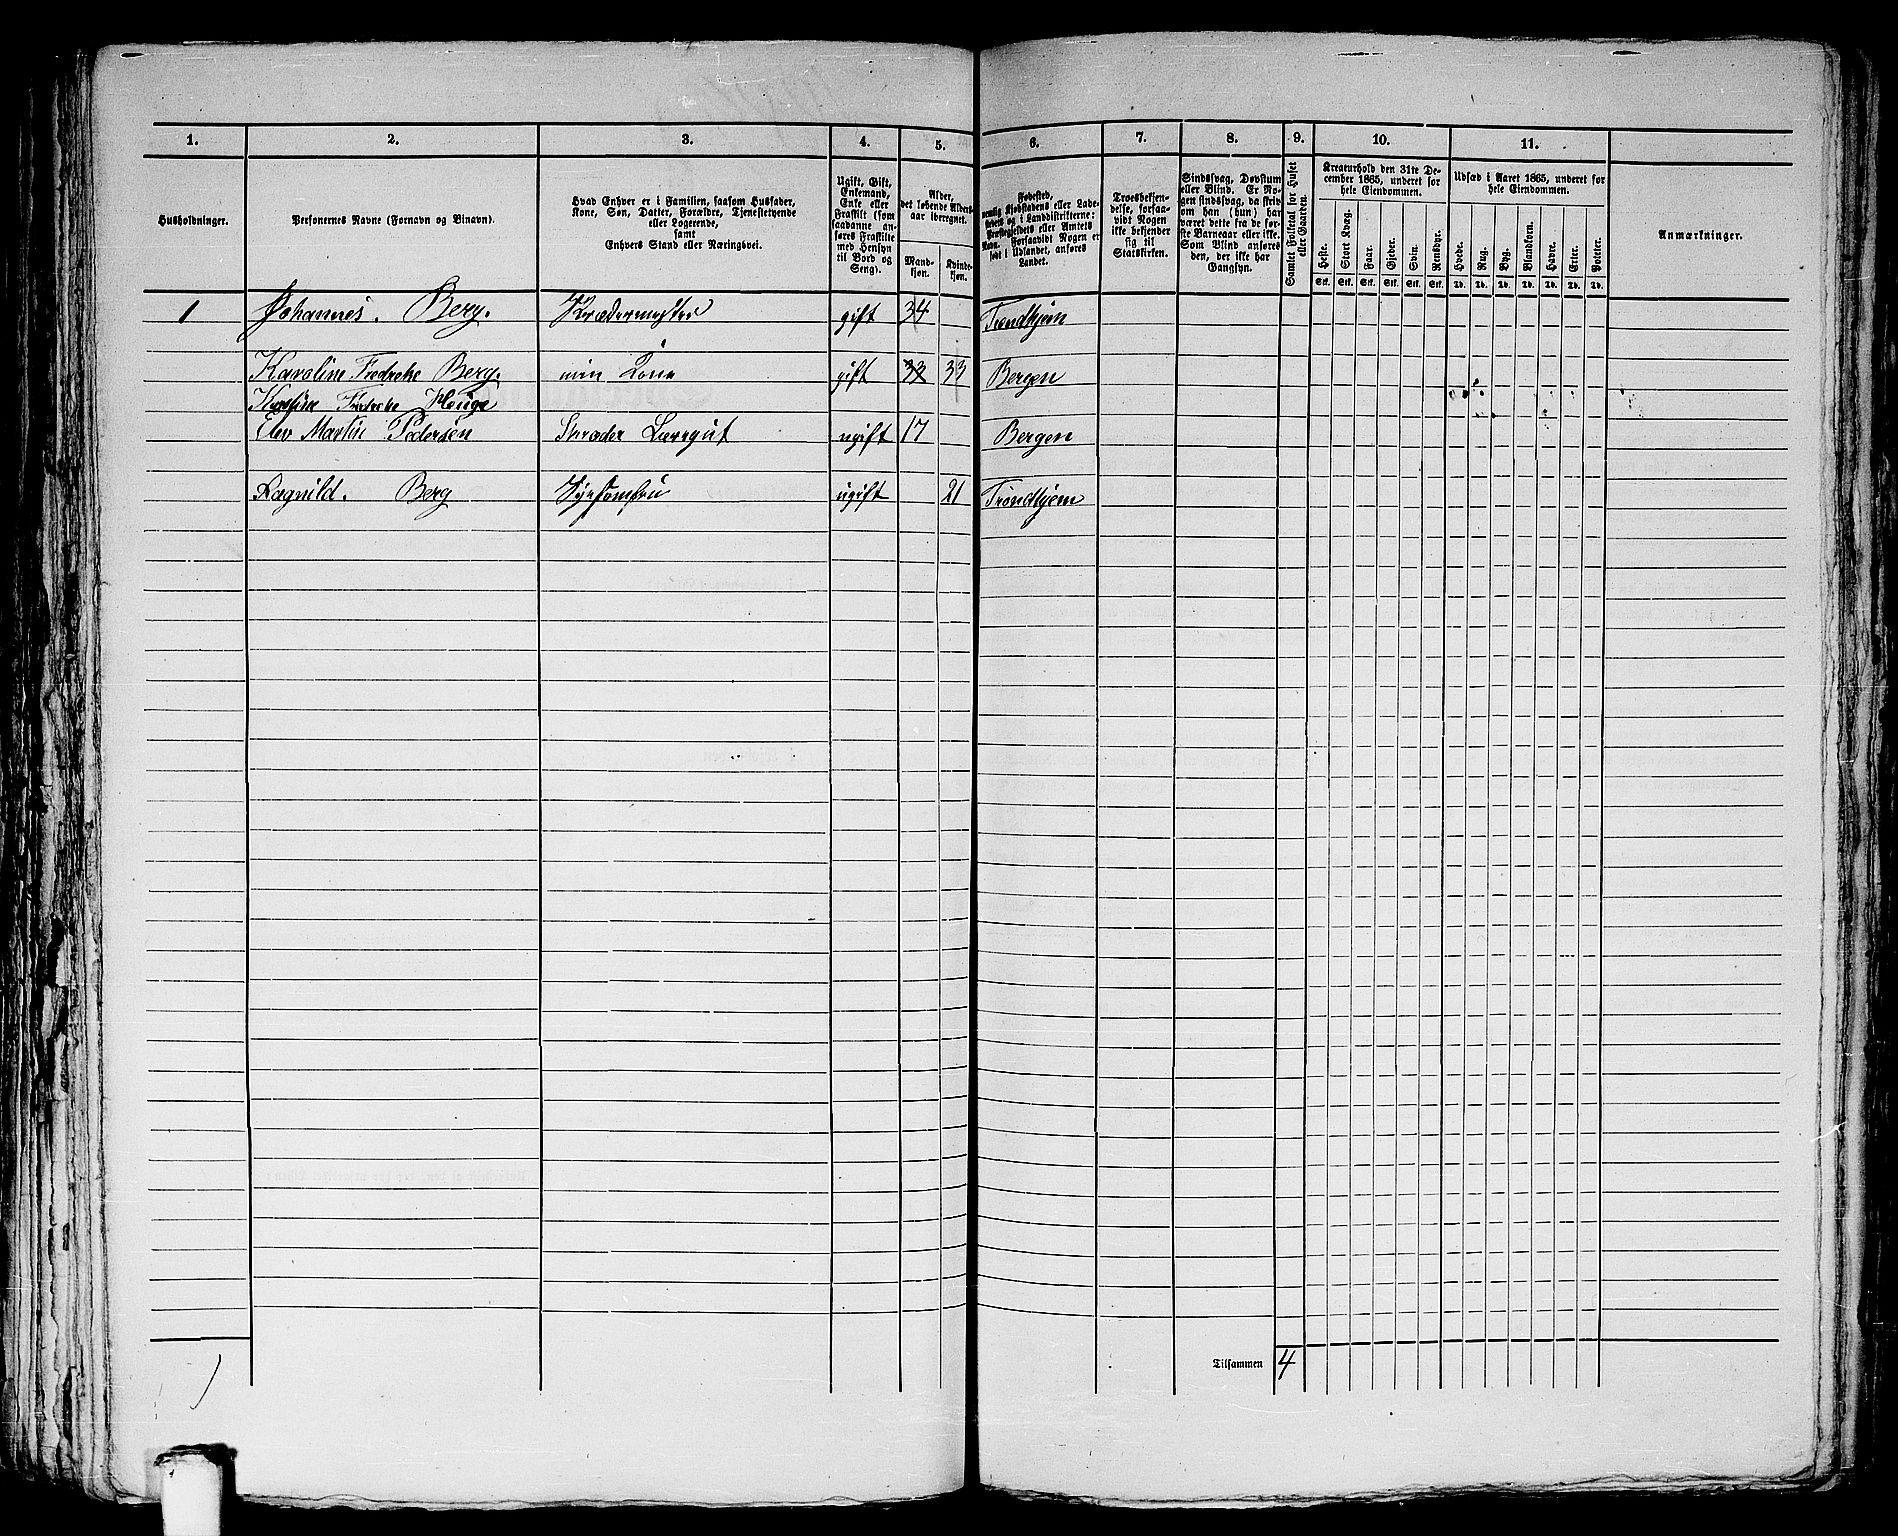 1. 2. 3. 4. 5. 6. 7. 8. 9. 10. 11.
Husholdninger.
Personernes Navne (Fornavn og Binavn).
Hvad Enhver er i Familien, saasom Husfader,
Kone, Søn, Datter, Forældre, Tjenestetyende
eller Logerende,
samt
Enhvers Stand eller Næringsvei.
Ugift, Gift,
Enkemand,
Enke eller
Fraskilt (som
saadanne an-
føres Fraskilte
med Hensyn
til Bord og
Seng).
Alder,
det løbende Alders-
aar iberegnet.
Mand-
kjøn.
Kvinde-
kjøn.
Fødested,
nemlig Kjøbstadens eller Lade-
stedets og i Landdistrikterne:
Præstegjeldets eller Amtets
Navn. Forsaavidt Nogen er
født i Udlandet, anføres
Landet.
Troesbekjen-
delse, forsaa-
vidt Nogen
ikke bekjender
sig til
Statskirken.
Sindssvag, Døvstum
eller Blind. Er No-
gen sindssvag, da skriv
om han (hun) har
været dette fra de før-
ste Barneaar eller ikke.
Som Blind anføres
den, der ikke har
Gangsyn.
Samlet Folketal for Huset
eller Gaarden.
Kreaturhold den 31te De-
cember 1865, underet for
hele Eiendommen.
Heste. Stort Kvæg. Faar. Gjeder. Svin. Rensdyr.
Stk. Stk. Stk. Stk. Stk. Stk.
Udsæd i Aaret 1865, underet for
hele Eiendommen.
Hvede. Rug. Byg. Blandkorn. Havre. Erter. Poteter.
Td. Td. Td. Td. Td. Td. Td.
Anmærkninger.
1 Johannes. Berg. gift 34 Trondhjem
Karoline Fredreke Berg. min Kone gift 33 33 Bergen
Fredreke Houge
Martin Pedersen Skræder Læregut ugift 17 Bergen
Ragnild. Berg ugift 21 Trondhjem
Tilsammen 4